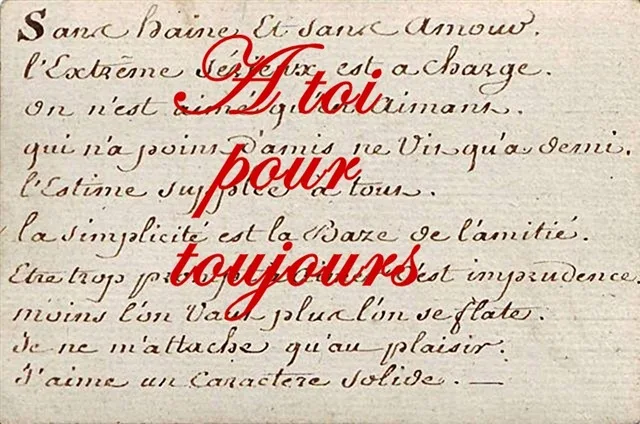 Sans haine Et sans amour.
l'Extrême sérieux est a charge.
on n'est aimé qu'en aimant.
qui n'a point d'amis ne Vit qu'a demi.
l'Estime supplée a tout.
la simplicité est la Baze de l'amitié.
Etre trop c'est imprudence.
moins l'on Vaut plus l'on se flate.
Je ne m'attache qu'au plaisir.
J'aime un caractere solide. —
A toi
pour
toujours